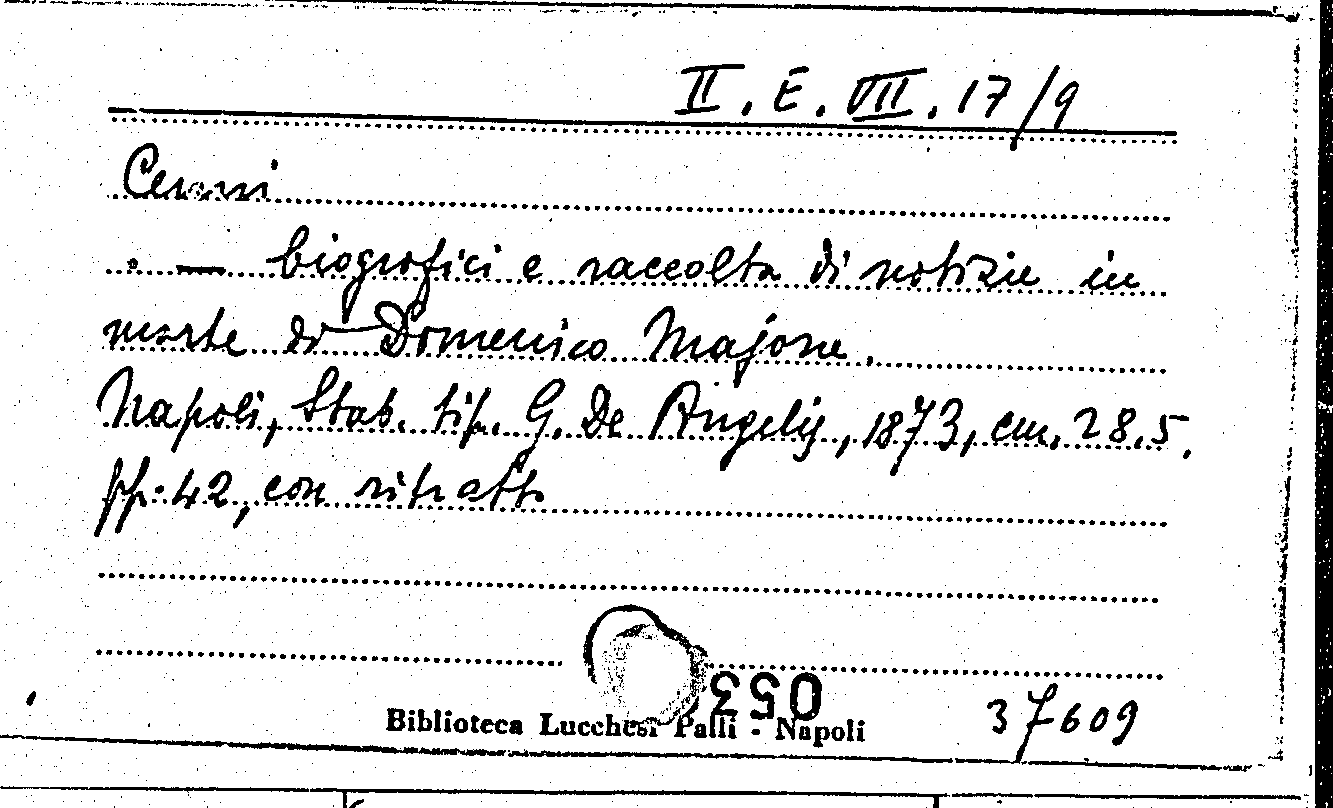 II. E. VII. 17/9
Cenni
. — biografici e raccolta di notizie in
morte di Domenico Majone.
Napoli, Stab. tip. G. De Angelis, 1873, cm. 28.5,
pp. 42, con ritratto
053
Biblioteca Lucchesi Palli - Napoli
37609